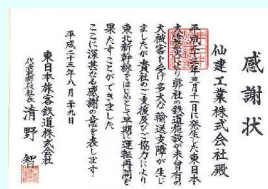 感謝状
仙建工業株式会社殿
平成二十三年三月十一日に発生した東日本
大震災により弊社の鉄道施設が未曽有の
大被害を受け多大な輸送支障が生じ
ましたが貴社のご支援及びご協力により
東北新幹線をはじめとし早期に運転再開を
果たすことができました
ここに深甚なる感謝の意を表します
平成二十三年八月二十九日
東日本旅客鉄道株式会社
代表取締役社長 清野 智